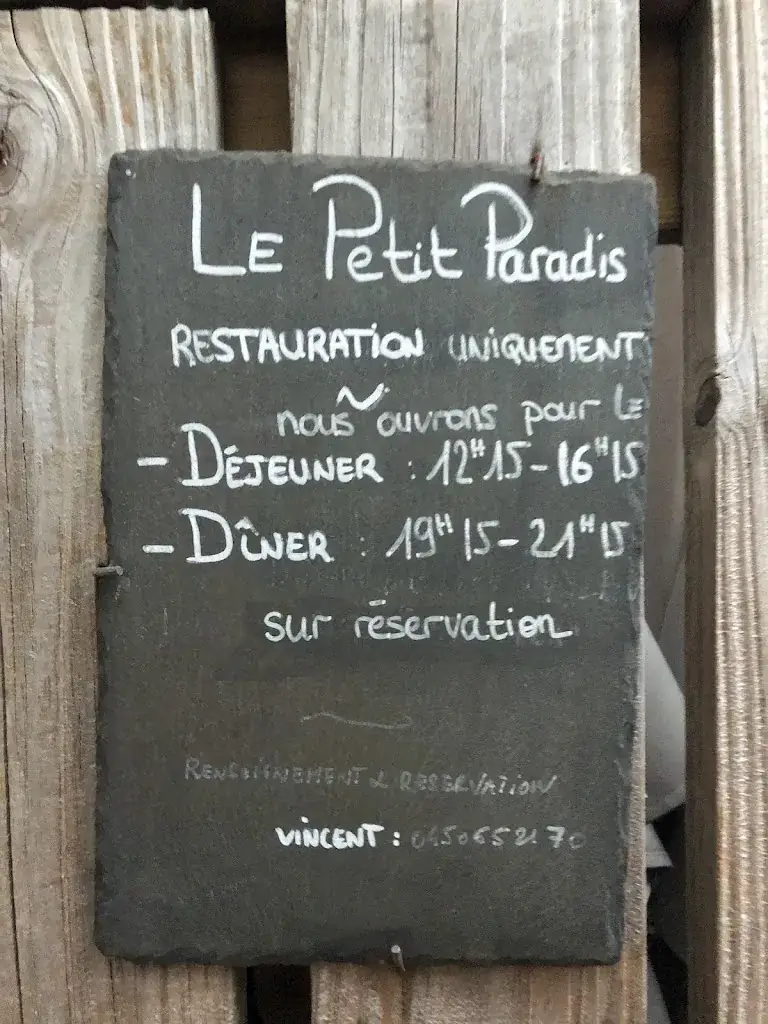 LE Petit Paradis
RESTAURATION UNIQUEMENT
nous ouvrons pour le
- DÉJEUNER : 12H15 - 16H15
- DÎNER : 19H15 - 21H15
sur réservation
RENSEIGNEMENT & RESERVATION
VINCENT :